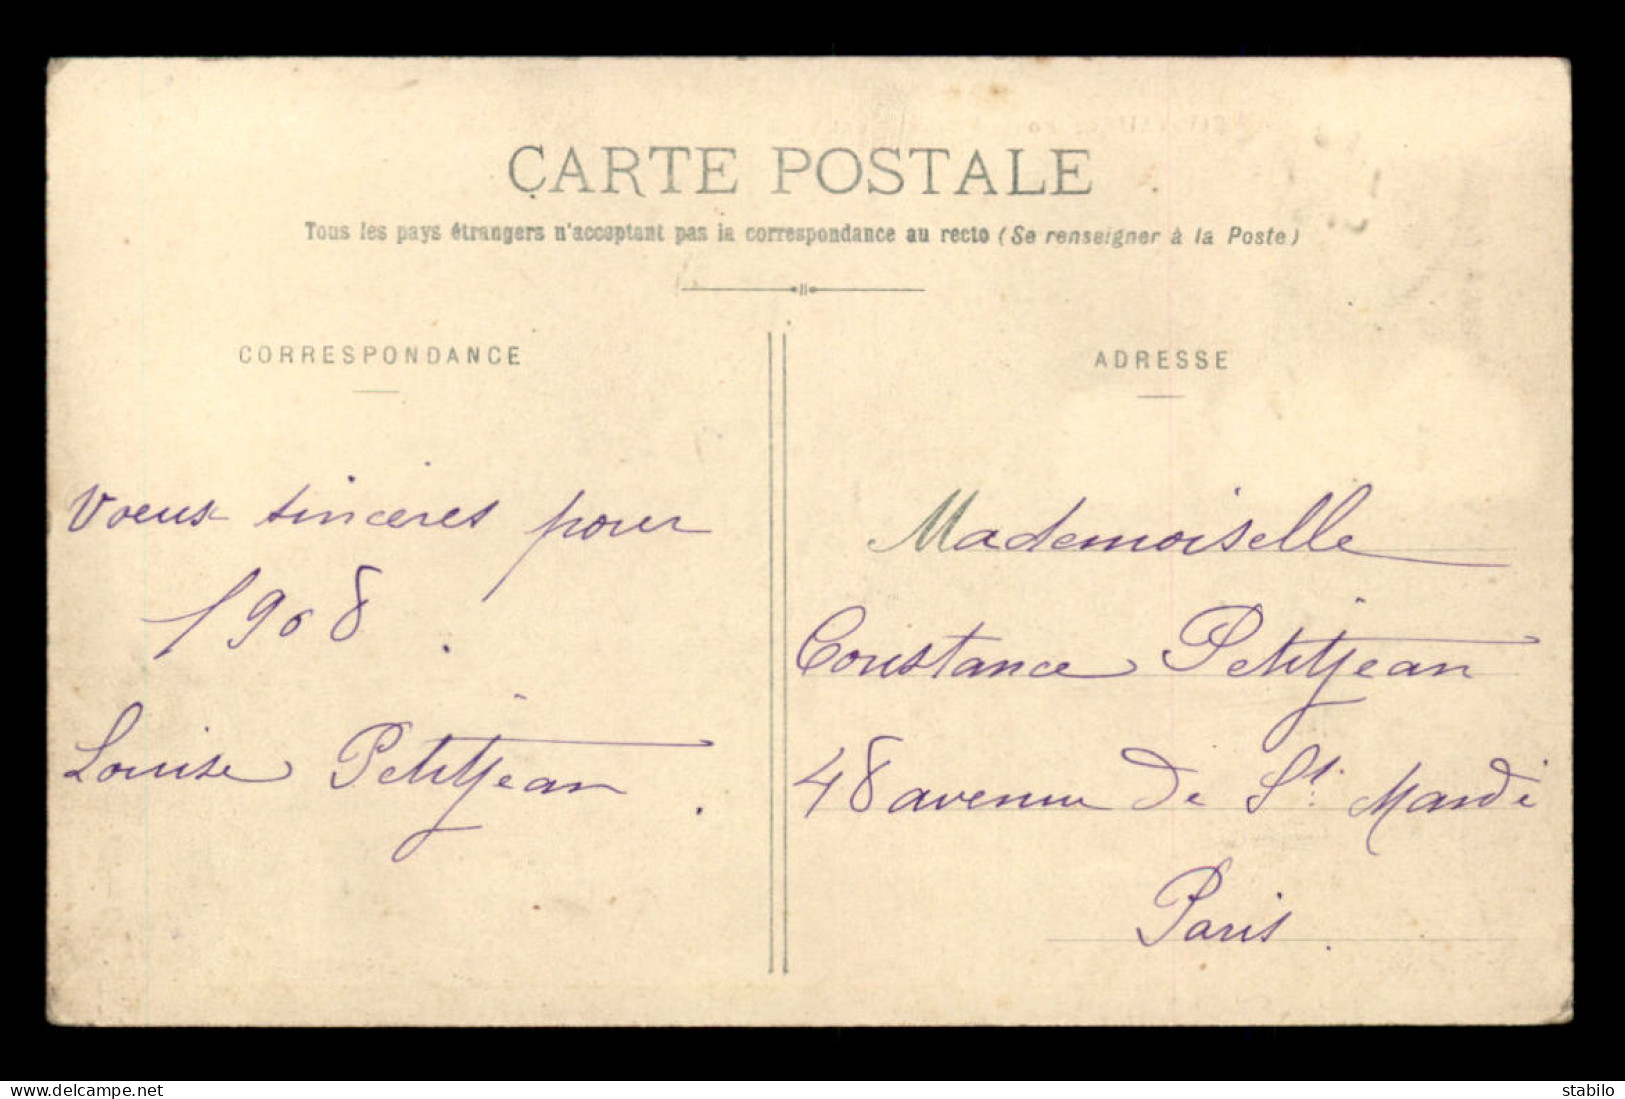 CARTE POSTALE
Tous les pays étrangers n'acceptant pas la correspondance au recto (Se renseigner à la Poste)
CORRESPONDANCE
Voeux sincères pour
1908.
Louise Petitjean.
ADRESSE
Mademoiselle
Constance Petitjean
48 avenue de St. Mandé
Paris.
delcampe.net
stabilo